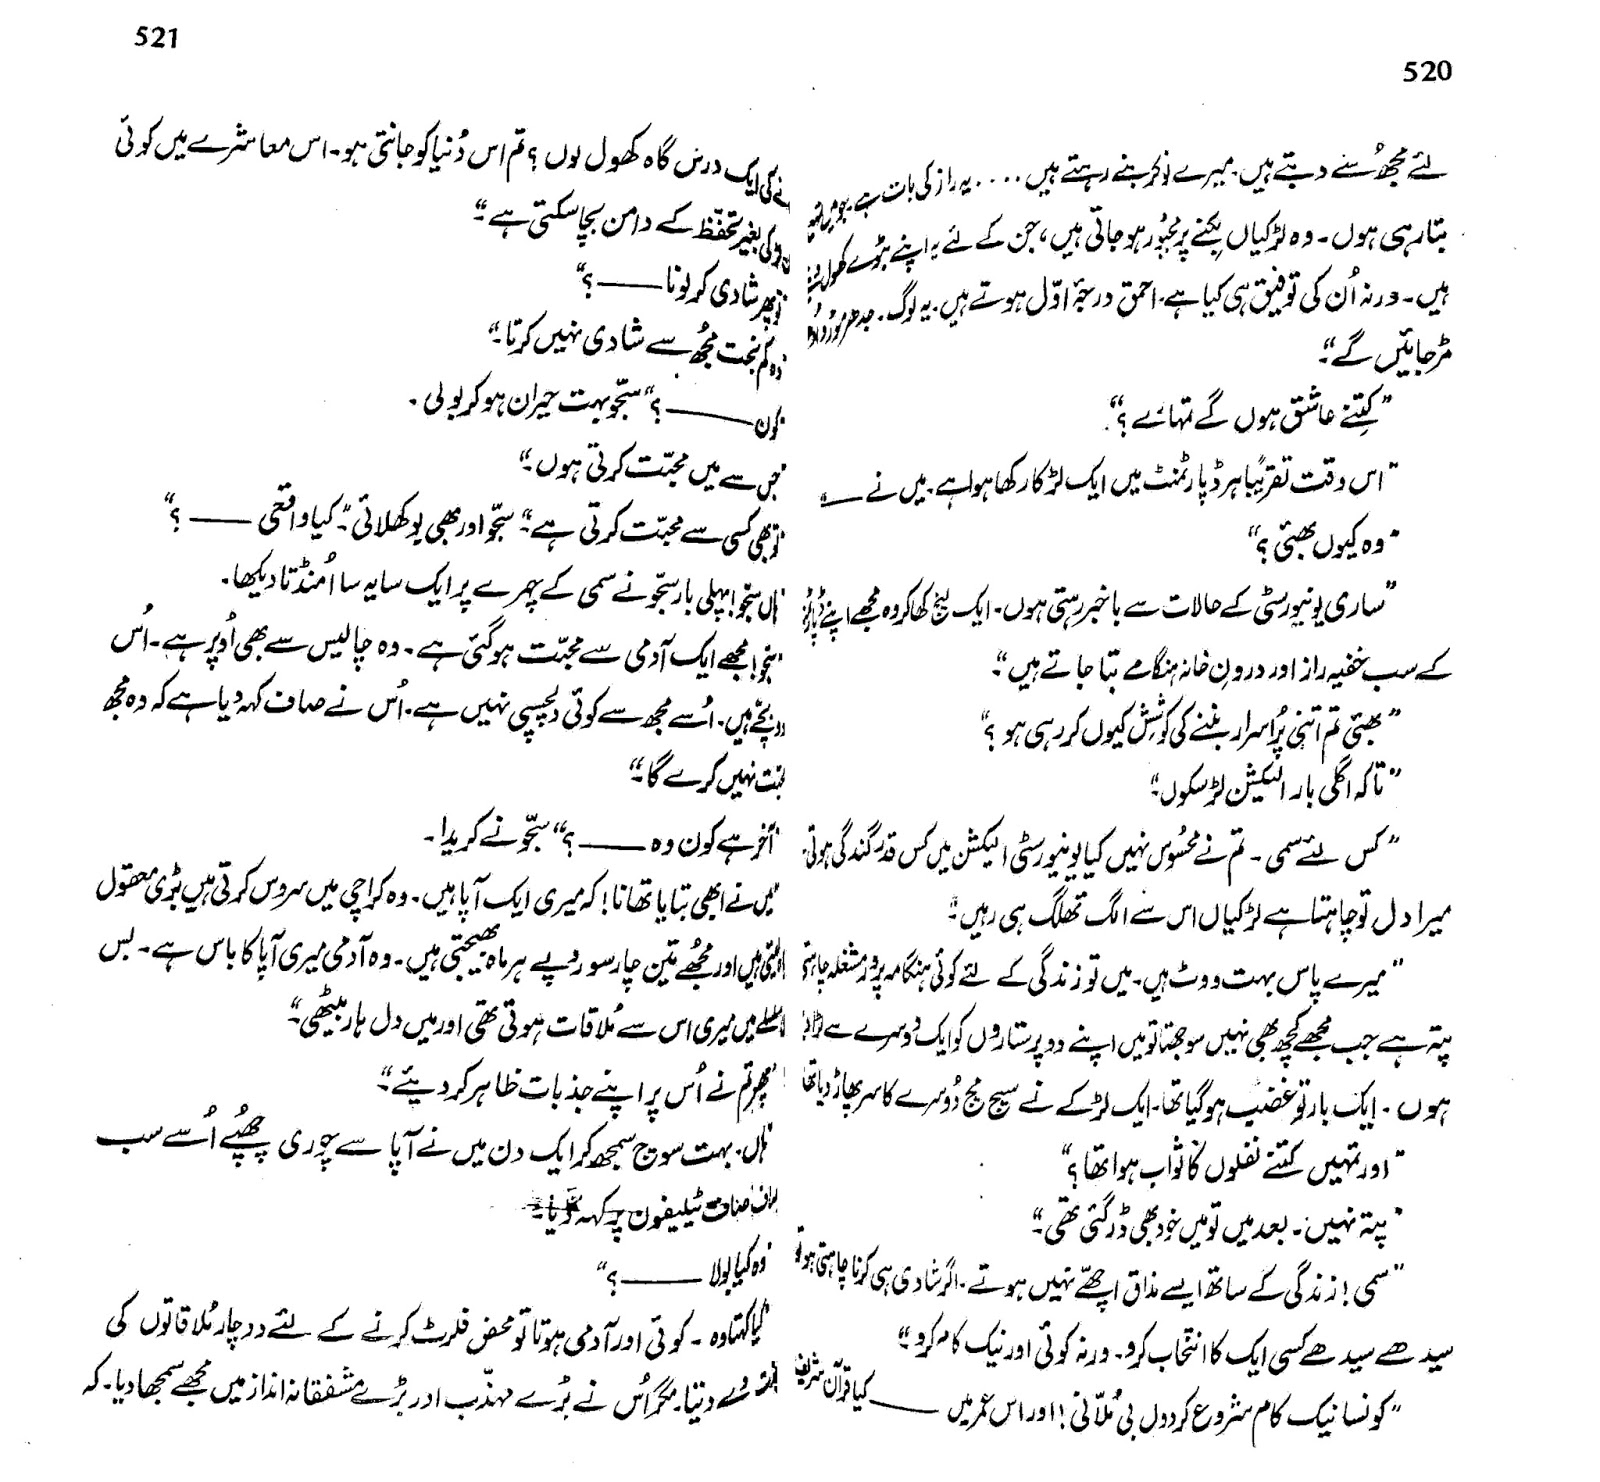 520
لئے مجھ سے دبتے ہیں۔ میرے نوکر بنے رہتے ہیں .... یہ راز کی بات ہے
بتا رہی ہوں۔ وہ لڑکیاں بکنے پر مجبور ہو جاتی ہیں، جن کے لئے یہ اپنے بٹوے کھول
ہیں۔ ورنہ اُن کی توفیق ہی کیا ہے۔ احمق درجۂ اوّل ہوتے ہیں۔ یہ لوگ۔ جدھر موڑو
مڑ جائیں گے“۔
”کتنے عاشق ہوں گے تمہارے؟“
”اس وقت تقریباً ہر ڈپارٹمنٹ میں ایک لڑکا رکھا ہوا ہے۔ میں نے ——“
”وہ کیوں بھئی؟“
”ساری یونیورسٹی کے حالات سے باخبر رہتی ہوں۔ ایک لنچ کھا کر وہ مجھے اپنے
کے سب خفیہ راز اور درونِ خانہ ہنگامے بتا جاتے ہیں“۔
”بھئی تم اتنی پُراسرار بننے کی کوشش کیوں کر رہی ہو؟“
”تاکہ اگلی بار الیکشن لڑ سکوں“۔
”کس لئے سمی۔ تم نے محسوس نہیں کیا یونیورسٹی الیکشن میں کس قدر گندگی ہوتی
میرا دل تو چاہتا ہے لڑکیاں اس سے الگ تھلگ ہی رہیں“۔
”میرے پاس بہت ووٹ ہیں۔ میں تو زندگی کے لئے کوئی ہنگامہ پرور مشغلہ چاہتی
پتہ ہے جب مجھے کچھ بھی نہیں سوجھتا تو میں اپنے دو پرستاروں کو ایک دوسرے سے لڑا
ہوں۔ ایک بار تو غضب ہو گیا تھا۔ ایک لڑکے نے سچ مچ دُوسرے کا سر پھاڑ دیا تھا
”اور تمہیں کتنے نفلوں کا ثواب ہوا تھا؟“
”پتہ نہیں۔ بعد میں تو میں خود بھی ڈر گئی تھی“۔
”سمی! زندگی کے ساتھ ایسے مذاق اچھے نہیں ہوتے۔ اگر شادی ہی کرنا چاہتی ہو تو
سیدھے سیدھے کسی ایک کا انتخاب کرو۔ ورنہ کوئی اور نیک کام کرو“۔
”کونسا نیک کام شروع کر دوں بی مُلّانی! اور اس عمر میں —— کیا قرآن شریف
521
کی ایک درس گاہ کھول لوں؟ تم اس دُنیا کو جانتی ہو۔ اس معاشرے میں کوئی
کی بغیر تحفّظ کے دامن بچا سکتی ہے“۔
تو پھر شادی کر لو نا ——؟“
وہ کم بخت مجُھ سے شادی نہیں کرتا“۔
کون ——؟“ سجّو بہت حیران ہو کر بولی۔
جس سے میں محبّت کرتی ہوں“۔
تو بھی کسی سے محبّت کرتی ہے“۔ سجّو اور بھی بوکھلائی۔ ”کیا واقعی ——؟“
ہاں سجّو! پہلی بار سجّو نے سمی کے چہرے پر ایک سایہ سا اُمنڈتا دیکھا۔
سجّو! مجھے ایک آدمی سے محبّت ہو گئی ہے۔ وہ چالیس سے بھی اُوپر ہے۔ اُس
دو بچّے ہیں۔ اُسے مجھ سے کوئی دلچسپی نہیں ہے۔ اُس نے صاف کہہ دیا ہے کہ وہ مجھ
محبّت نہیں کرے گا“۔
آخر ہے کون وہ ——؟“ سجّو نے کریدا۔
میں نے ابھی بتایا تھا نا! کہ میری ایک آپا ہیں۔ وہ کراچی میں سروس کرتی ہیں بڑی معقول
لیتی ہیں اور مجُھے تین چار سو روپے ہر ماہ بھیجتی ہیں۔ وہ آدمی میری آپا کا باس ہے۔ بس
سلسلے میں میری اس سے مُلاقات ہوتی تھی اور میں دل ہار بیٹھی“۔
پھر تم نے اُس پر اپنے جذبات ظاہر کر دیئے“۔
ہاں۔ بہت سوچ سمجھ کر ایک دن میں نے آپا سے چوری چھپے اُسے سب
صاف صاف ٹیلیفون پر کہہ دیا“۔
وہ کیا بولا ——؟“
کیا کہتا وہ۔ کوئی اور آدمی ہوتا تو محض فلرٹ کرنے کے لئے دو چار مُلاقاتوں کی
دے دیتا۔ مگر اُس نے بڑے مہذّب اور بڑے مشفقانہ انداز میں مجھے سمجھا دیا۔ کہ